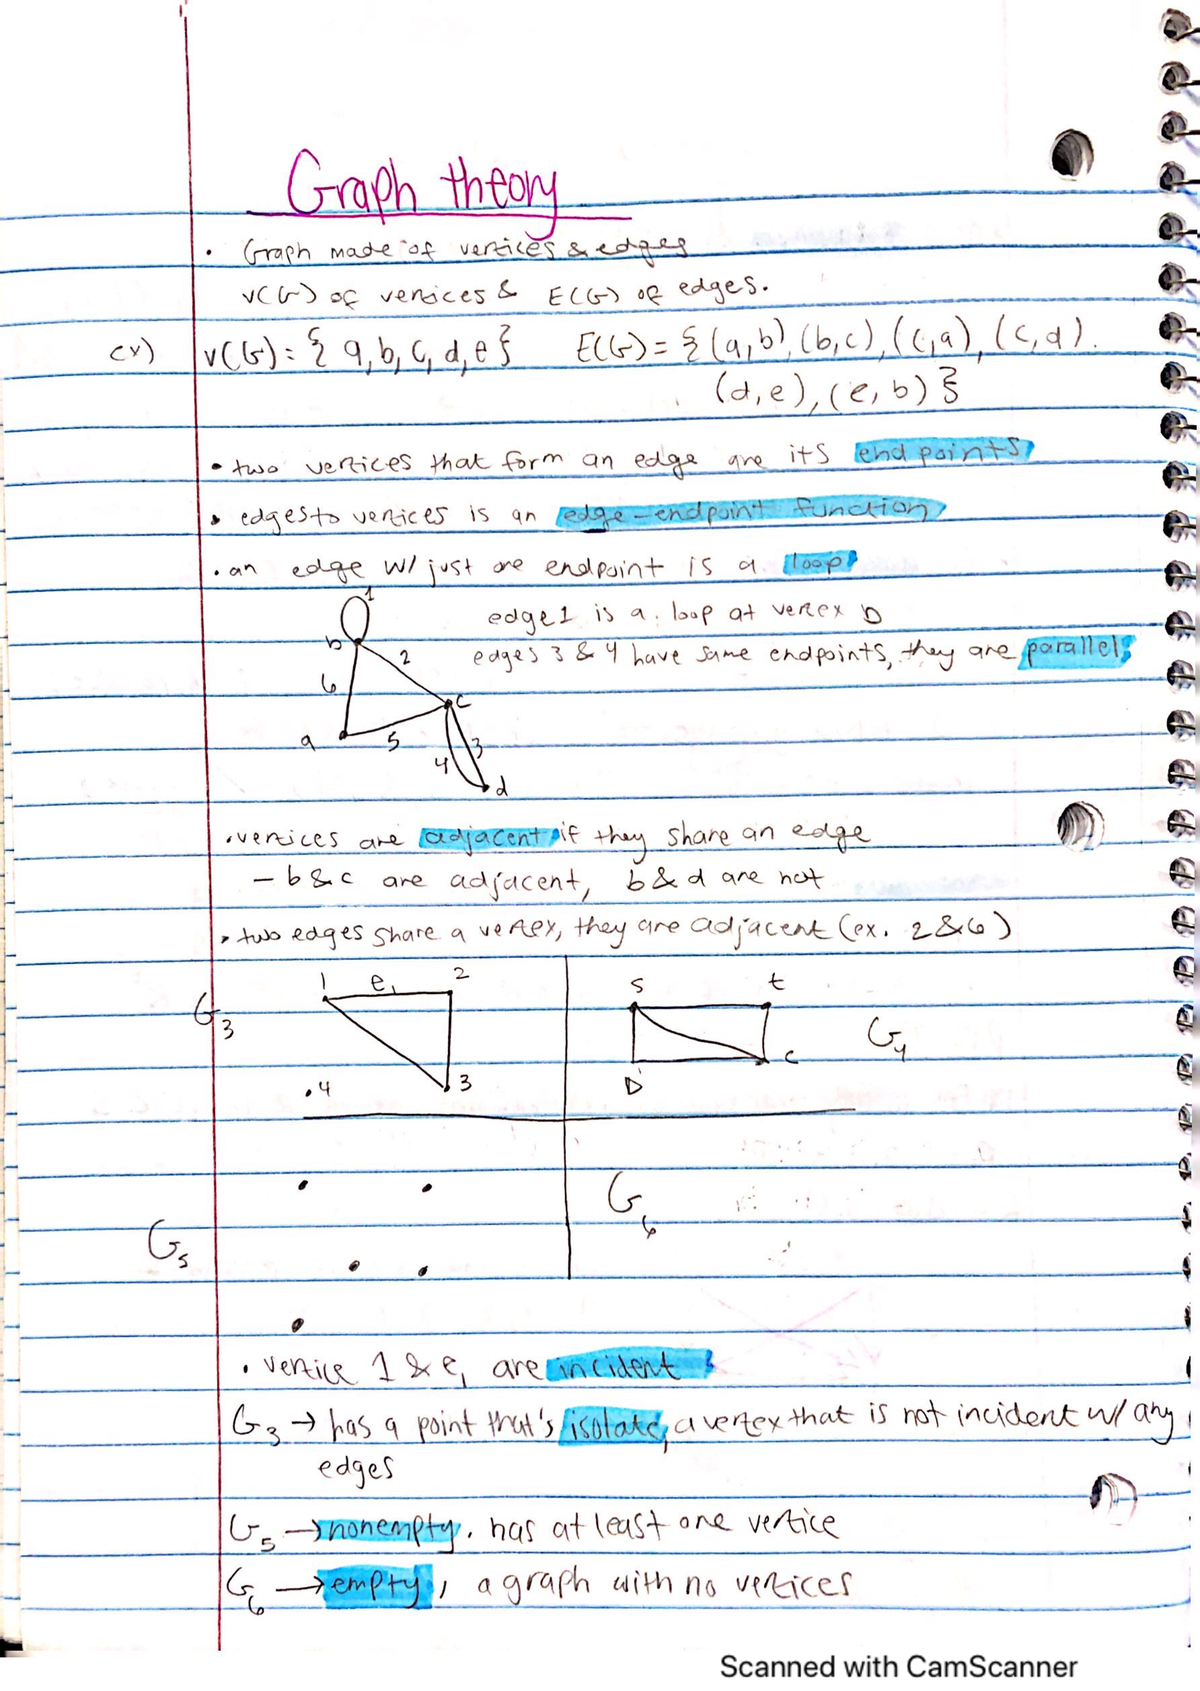 Graph theory
• Graph made of vertices & edges
V(G) of vertices & E(G) of edges.
ex) V(G) = { a, b, c, d, e } E(G) = { (a,b), (b,c), (c,a), (c,d).
(d,e), (e,b) }
• two vertices that form an edge are its endpoints
• edges to vertices is an edge-endpoint function
• an edge w/ just one endpoint is a loop
1
edge 1 is a loop at vertex b
b 2
edges 3 & 4 have same endpoints, they are parallel
6
c
a 5 3
4
d
• vertices are adjacent if they share an edge
– b & c are adjacent, b & d are not
• two edges share a vertex, they are adjacent (ex. 2 & 6)
1 e₁ 2 s t
G₃ G₄
c
• 4 3 D
G₆
G₅
• vertice 1 & e₁ are incident
G₃ → has a point that's isolate, a vertex that is not incident w/ any
edges
G₅ → nonempty. has at least one vertice
G₆ → empty, a graph with no vertices
Scanned with CamScanner